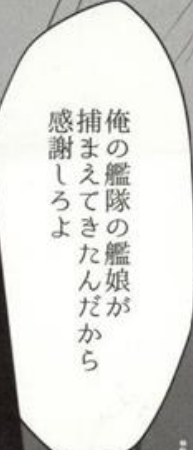 俺の艦隊の艦娘が
捕まえてきたんだから
感謝しろよ